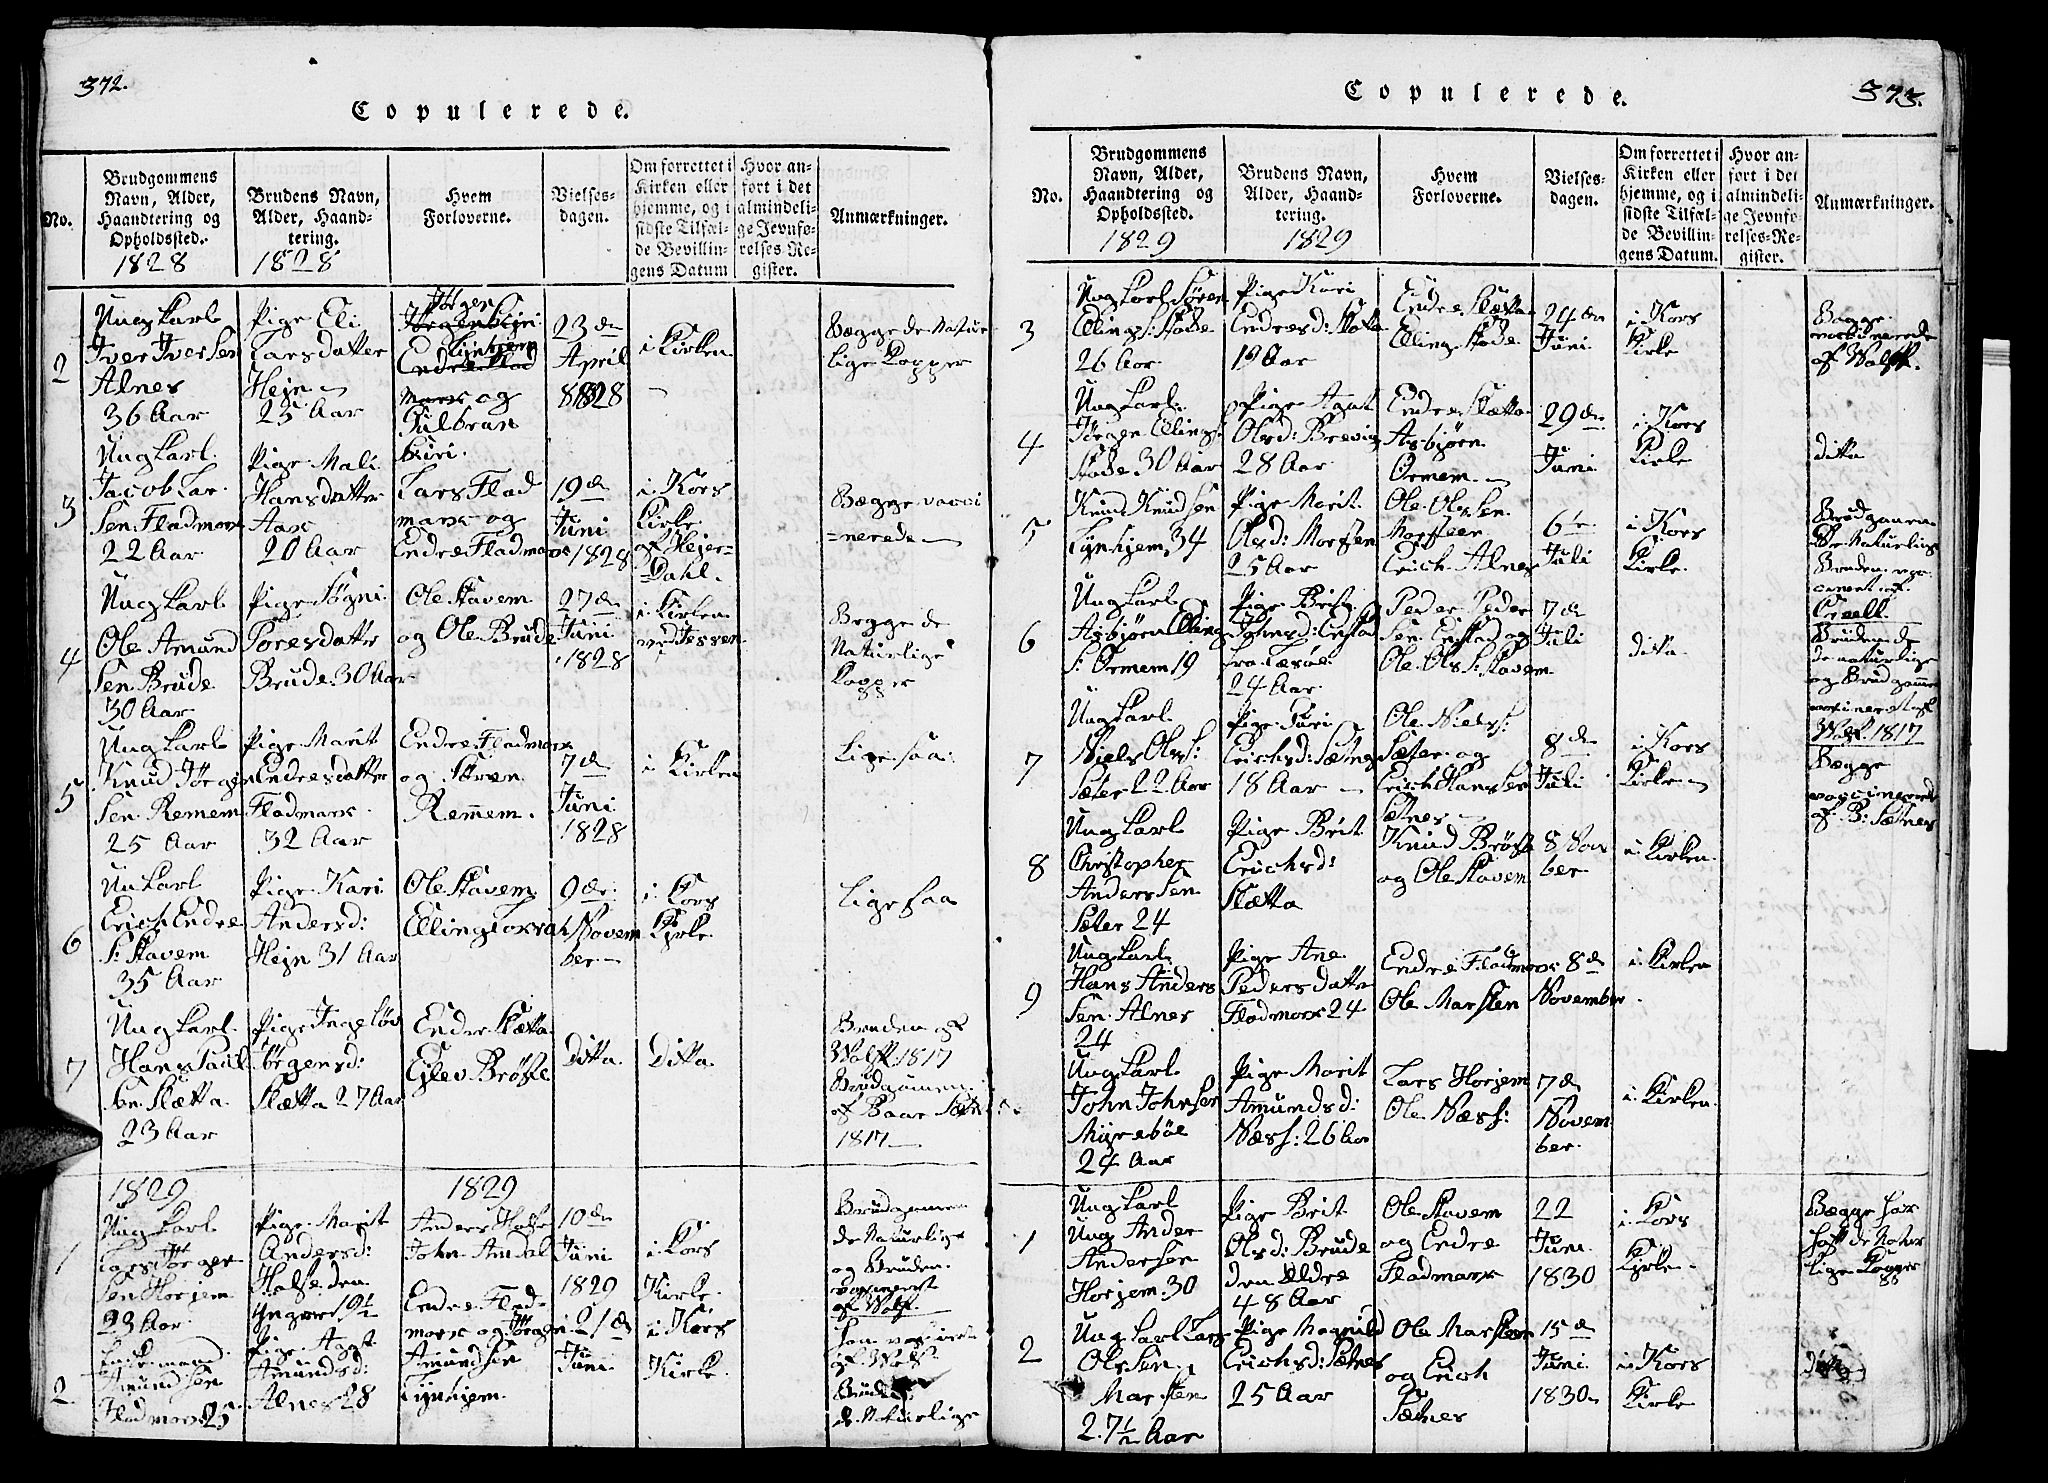 372.
Copulerede.
No.
Brudgommens
Navn, Alder,
Haandtering og
Opholdssted.
1828
Brudens Navn,
Alder, Haand-
tering.
1828
Hvem
Forloverne.
Vielses-
dagen.
Om forrettet i
Kirken eller
hjemme, og i
sidste Tilfæl-
de Bevillin-
gens Datum
Hvor an-
ført i det
almindeli-
ge Jevnfø-
relses-Re-
gister.
Anmærkninger.
2
Ung Karl
Iver Iversen
Alnes
36 Aar
Pige Eli
Larsdatter
Hejn
25 Aar
Jørgen
Lynhjem
Marx og
Gulbran
23de
April
1828
i Kirken
Begge de Natur
lige Kopper
3
Ung Karl
Jacob Lar
Sen Fladmarx
22 Aar
Pige Mali
Hansdatter
Aar
20 Aar
Lars Flad
marx og
Endre Fladmarx
19de
Juni
1828
i Kors
Kirke
af Hejer-
Dahl.
Begge vacci
=nerede
4
Ung Karl
Ole Amund
Sen Brude
30 Aar
Pige Søgni
Toresdatter
Brude 30 Aar
Ole Stavem
og Ole Brude
27de
Juni
1828
i Kirken
ved Jessen
Begge de
Naturlige
Kopper
5
Ung Karl
Knud Jørgen
Sen Remem
25 Aar
Pige Marit
Endresdatter
Fladmarx
32 Aar
Endre Fladmarx
og Søren
Remem.
7de
Juni
1828
i Kirken
Lige saa
6
Un Karl
Erich Endre
S: Stavem
35 Aar
Pige Kari
Andersd:
Hejn 31 Aar
Ole Stavem
Elling
9de
Novem
ber
i Kors
Kirke
Lige saa
7
Ung Karl
Hans Paul
sen Slætta
23 Aar
Pige Ingeløv
Jørgensd:
Slætta 27 Aar
Endre Slætta
Ejlev Brøste
Ditta
Ditta
Bruden af
Wolff 1817
Brudgomen
af Baar Sætn
1817
1829
1829
1
Ung Karl
Lars Jørgen
Sen Horjem
23 Aar
Pige Marit
Andersd:
Halse den
Yngere 19½
Anders Halse
John Amdal
10de
Juni
1829
i Kors
Kirke
Brudgomen
de Naturlige
og Bruden
vacineret
af Wolf
2
Enkemand
Amundsen
Fladmarx 25
Pige Agat
Amundsd:
Alnes 28
Endre Flad-
marx og Jørgen
Amundsen
Lynhjem
21de
Juni
i Kors
Kirke
af Wolf
Bruden
de Naturlige
373.
Copulerede.
No.
Brudgommens
Navn, Alder,
Haandtering og
Opholdssted.
1829
Brudens Navn,
Alder, Haand-
tering.
1829
Hvem
Forloverne.
Vielses-
dagen.
Om forrettet i
Kirken eller
hjemme, og i
sidste Tilfæl-
de Bevillin-
gens Datum.
Hvor an-
ført i det
almindeli-
ge Jevnfø-
relses-Re-
gister.
Anmærkninger.
3
Ung Karl Søren
Ellings: Stode
26 Aar
Pige Kari
Endresd: Slætta
19 Aar
Endre Slætta
Elling Stode
24de
Juni
i Kors
Kirke
Begge
vaccinerede
af Wolff.
4
Ung Karl
Jørgen Ellings:
Stode 30 Aar
Pige Agat
Olsd: Brevig
28 Aar
Endre Slætta
Asbjørn
Ormem
29de
Juni
i Kors
Kirke
ditta
5
Knud Knudsen
Lynhjem 34
Pige Marit
Olsd: Morsten
25 Aar
Ole Olsen
Morsteen
Erich Alnes
6te
Juli
i Kors
Kirke
Brudgomen
de Naturlige
Bruden vac
cineret af
6
Ung Karl
Asbjørn Elling
S: Ormem 19
Pige Brit
Johnsd: Enstad
fra Læsøe
24 Aar
Peder Peder
Sen Enstad og
Ole Ols S: Stavem
7de
Juli
ditta
Bruden de
de naturlige
og Brudgomen
vacineret af
Wolf 1817
7
Ung Karl
Niels Olss:
Sæter 22 Aar
Pige Turi
Erichsd: Sætnes
18 Aar
Ole Niels:
Sæter og
Erich Hanssen
Sætnes
8de
Juli
i Kors
Kirke
Begge
vaccinered
af B: Sætnes
8
Ung Karl
Christopher
Anderssen
Sæter 24
Pige Brit
Erichsd:
Slætta
Knud Brøste
og Ole Stavem
8 Novm
ber
i Kirken.
9
Ung Karl
Hans Anders
Sen Alnes
24
Pige Ane
Pedersdatter
Fladmarx 24
Endre Fladmarx
Ole Marsten
8de
November
i Kirken
Ung Karl
John Johnsen
Myrebøe
24 Aar
Pige Marit
Amundsd:
Næss: 26 Aar
Lars Horjem
Ole Næss:
7de
Novem
ber.
i Kirken.
1
Ung Karl
Ung Ander
Andersen
Horjem 30
Pige Brit
Olsd: Brude
den Eldre
48 Aar
Ole Stavem
og Endre
Fladmarx
22
Juni
1830
i Kors
Kirke
Begge har
haft de Natur
lige Kopper
2
Ung Karl Lars
Olssen
Marsten
27½ Aar
Pige Magnild
Erichsd: Sætnes
25 Aar
Ole Marsten
og Erich
Sætnes
15de
Juni
1830
i Kors
Kirke
Ditto